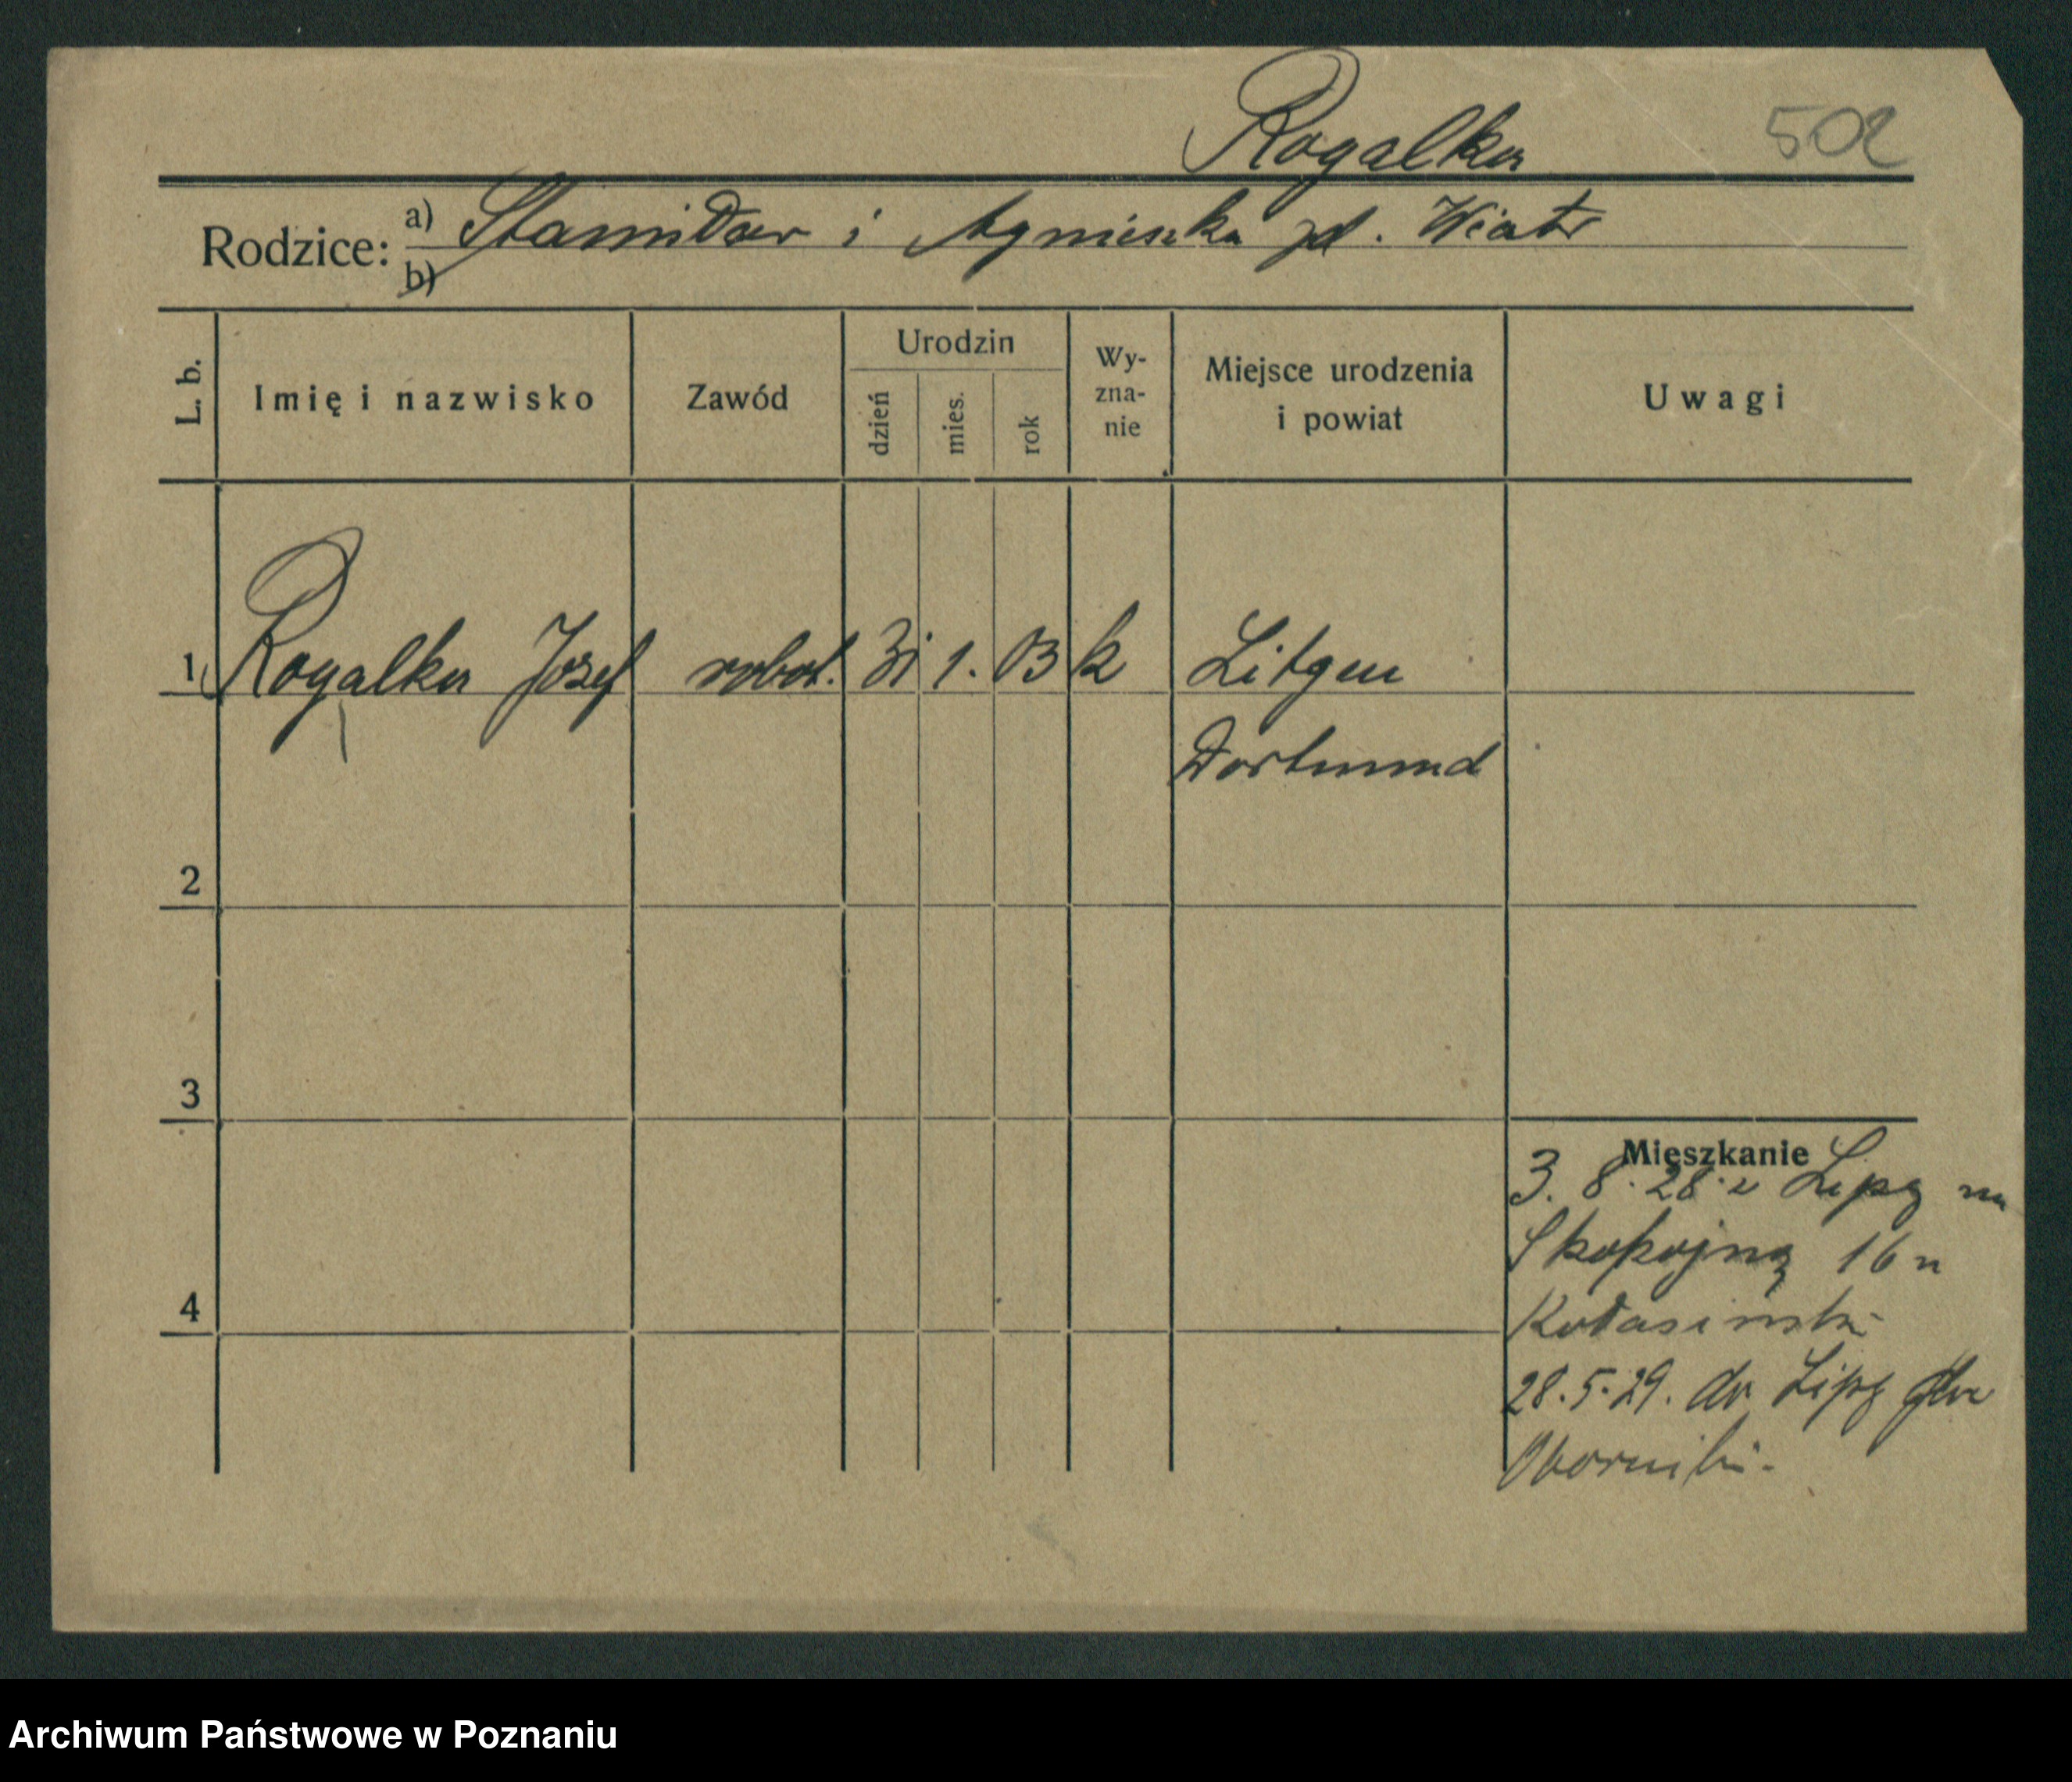 Rogalka 502
Rodzice: a) Stanisław i Agnieszka zd. Wiatr
b)
L. b. Imię i nazwisko Zawód Urodzin dzień mies. rok Wy-zna-nie Miejsce urodzenia i powiat Uwagi
1 Rogalka Józef robot. 31 1. 03 k Litgen
Dortmund
2
3
Mieszkanie
3. 8. 28 z Lipy na
Spokojną 16 u
4
Kołasiński
28. 5. 29. do Lipy
Oborniki.
Archiwum Państwowe w Poznaniu